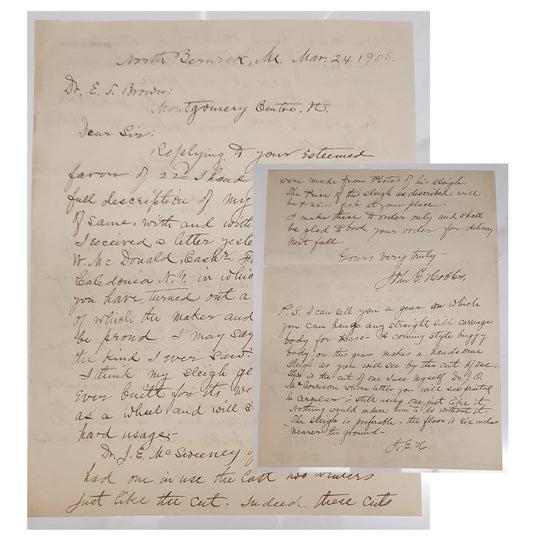 North Berwick, Me. Mar. 24, 1908.
Dr. E. S. Brown:
Montgomery Centre, Vt.
Dear Sir:
Replying to your Esteemed
favor of 22nd I hand
full description of my
of same, with and with
I received a letter yeste
W. McDonald, Cashr
Caledonia N.Y. in which
you have turned out a
of which the maker and
be proud. I may say
the kind I ever saw.
I think my sleigh ge
ever built for its we
as a wheel and will s
hard usage-
Dr. J. E. McSweeney of
had one in use the last two winters
just like the cut. Indeed these cuts
were made from Photos of his sleigh.
The Price of this sleigh as described will
be $125. at your place.
I make these to order only and shall
be glad to book your order for delivery
next fall.
Yours very truly-
John E. Hobbs.
P.S. I can sell you a gear on which
you can hang any straight sill carriage
body for less- A corning style buggy
body on this gear makes a handsome
sleigh as you will see by the cut of one.
This is the cut of one I use myself. Dr.
whose letter you will see printed
in circular is still using one just like it.
Nothing would induce him to do without it.
The sleigh is preferable- the floor is six inches
nearer the ground-
J. E. H.